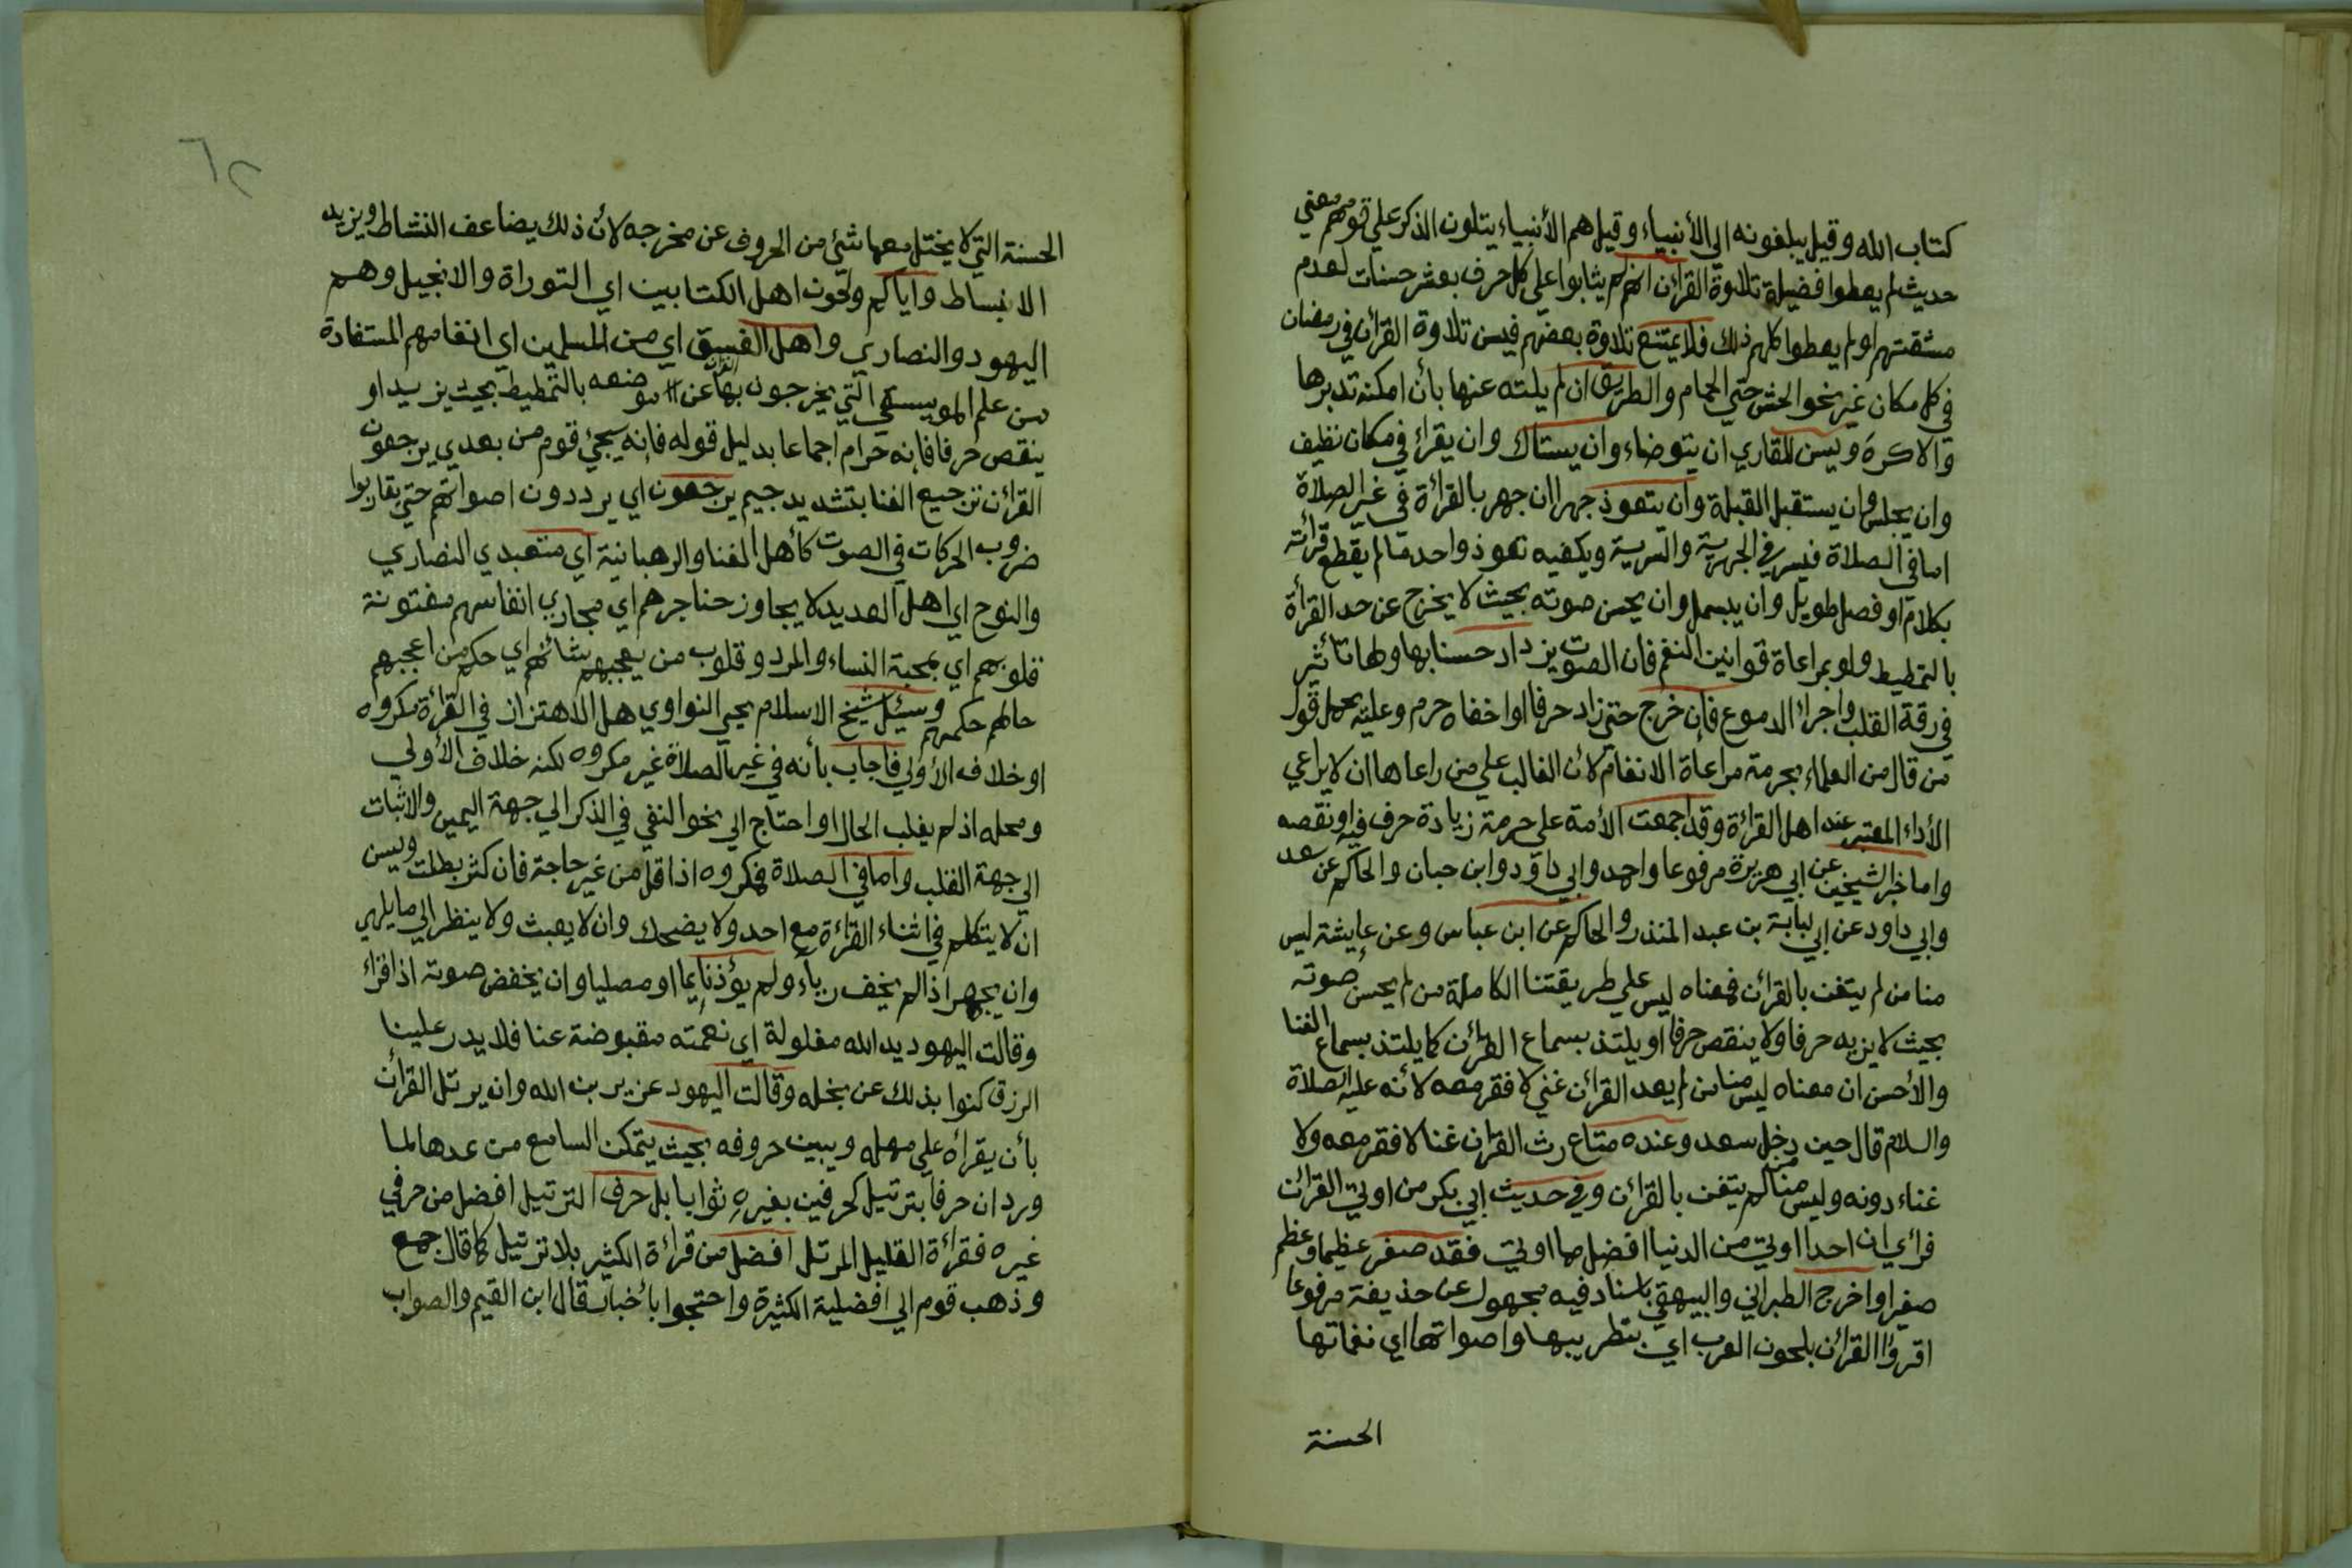 كتاب الله وقيل يبلغونه الي الأنبياء وقيل هم الأنبياء يتلون الذكر علي قومهم فمعني
حديث لم يعطوا فضيلة تلاوة القرأن انهم لم يثابوا علي كل حرف بعشر حسنات لعدم
مشقتهم او لم يعطوا كلهم ذلك فلا يمتنع تلاوة بعضهم فيسن تلاوة القرأن في رمضان
في كل مكان غير نحو الحش حتي الحمام والطريق ان لم يلته عنها بأن امكنه تدبرها
والاكره ويسن للقاري ان يتوضاء وان يستاك وان يقراء في مكان نظيف
وان يجلس وان يستقبل القبلة وان يتعوذ جهرا ان جهر بالقرائة في غير الصلاة
اما في الصلاة فيسر في الجهرية والسرية ويكفيه تعوذ واحد ما لم يقطع قرائته
بكلام او فصل طويل وان يبسمل وان يحسن صوته بحيث لا يخرج عن حد القرأة
بالتمطيط ولو بمراعاة قوانين النغم فان الصوت يزداد حسنا بها ولها تأثير
في رقة القلب واجراء الدموع فإن خرج حتي زاد حرفا او اخفاه حرم وعليه يحمل قول
من قال من العلماء بحرمة مراعاة الانغام لأن الغالب علي من راعاها ان لا يراعي
الأداء المعتبر عند اهل القراءة وقد اجمعت الأمة علي حرمة زيادة حرف فيه او نقصه
واما خبر الشيخين عن ابي هريرة مرفوعا واحمد وابي داود وابن حبان والحاكم عن سعد
وابي داود عن ابي لبابة بن عبد المنذر والحاكم عن ابن عباس وعن عايشة ليس
منا من لم يتغن بالقرأن فمعناه ليس علي طريقتنا الكاملة من لم يحسن صوته
بحيث لا يزيد حرفا ولا ينقص حرفا او يلتذ بسماع القرأن كما يلتذ بسماع الغنا
والأحسن ان معناه ليس منا من لم يعد القرأن غني لا فقر معه لأنه عليه الصلاة
والسلام قال حين دخل سعد وعنده متاع رث القرأن غنا لا فقر معه ولا
غناء دونه وليس منا من لم يتغن بالقرأن وفي حديث ابي بكر من اوتي القرأن
فرأي ان احدا اوتي من الدنيا افضل مما اوتي فقد صغر عظيما وعظم
صغيرا واخرج الطبراني والبيهقي باسناد فيه مجهول عن حذيفة مرفوعا
اقروا القرأن بلحون العرب اي بتطريبها واصواتها اي نغماتها
الحسنة
الحسنة التي لا يختل معها شئ من الحروف عن مخرجه لأن ذلك يضاعف النشاط ويزيد
الانبساط واياكم ولحون اهل الكتابين اي التوراة والانجيل وهم
اليهود والنصاري واهل الفسق اي من المسلمين اي انغامهم المستفادة
من علم الموسيقي التي يخرجون بها القرأن عن موضعه بالتمطيط بحيث يزيد او
ينقص حرفا فإنه حرام اجماعا بدليل قوله فإنه سيجئ قوم من بعدي يرجعون
القرأن ترجيع الغنا بتشديد جيم يرجعون اي يرددون اصواتهم حتي يقاربوا
ضروب الحركات في الصوت كأهل الغنا والرهبانية اي متعبدي النصاري
والنوح اي اهل العديد لا يجاوز حناجرهم اي مجاري انفاسهم مفتونة
قلوبهم اي بمحبة النساء والمرد وقلوب من يعجبهم شانهم اي حكم من اعجبهم
حالهم حكمهم وسئل شيخ الاسلام يحيي النواوي هل الاهتزاز في القرأة مكروه
او خلاف الأولي فأجاب بأنه في غير الصلاة غير مكروه لكنه خلاف الأولي
ومحله اذ لم يغلب الحال او احتاج الي نحو النفي في الذكر الي جهة اليمين والاثبات
الي جهة القلب واما في الصلاة فمكروه اذا قل من غير حاجة فان كثر بطلت ويسن
ان لا يتكلم في اثناء القراءة مع احد ولا يضحك وان لا يعبث ولا ينظر الي ما يلهي
وان يجهر اذا لم يخف رياء ولم يؤذ نايما او مصليا وان يخفض صوته اذا قراء
وقالت اليهود يد الله مغلولة اي نعمته مقبوضة عنا فلا يدر علينا
الرزق كنوا بذلك عن بخله وقالت اليهود عزير بن الله وان يرتل القرأن
بأن يقرأه علي مهله ويبين حروفه بحيث يتمكن السامع من عدها لما
ورد ان حرفا بترتيل كحرفين بغيره ثوابا بل حرف الترتيل افضل من حرفي
غيره فقرأة القليل المرتل افضل من قرأة الكثير بلا ترتيل كما قال جمع
وذهب قوم الي افضلية الكثيرة واحتجوا بأخبار قال ابن القيم والصواب